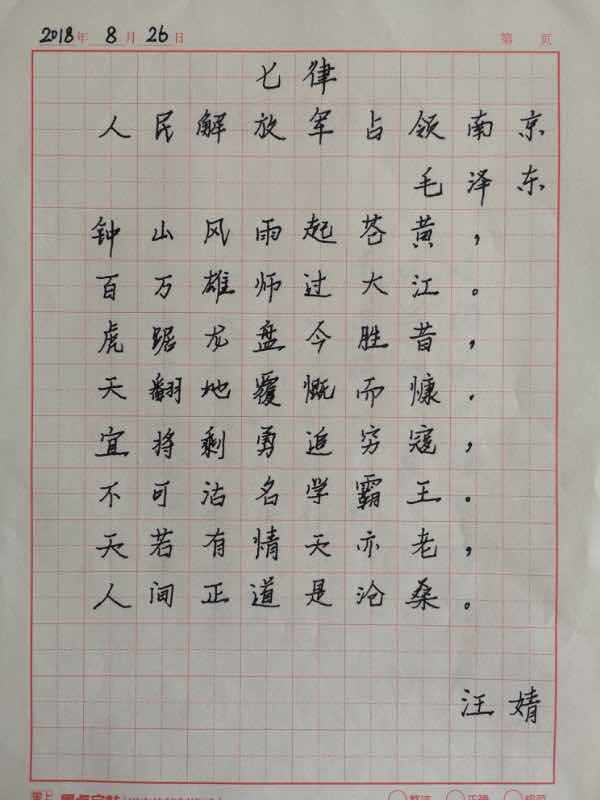 2018年 8月 26日 第 页
七律
人民解放军占领南京
毛泽东
钟山风雨起苍黄，
百万雄师过大江。
虎踞龙盘今胜昔，
天翻地覆慨而慷.
宜将剩勇追穷寇，
不可沽名学霸王。
天若有情天亦老，
人间正道是沧桑。
汪婧